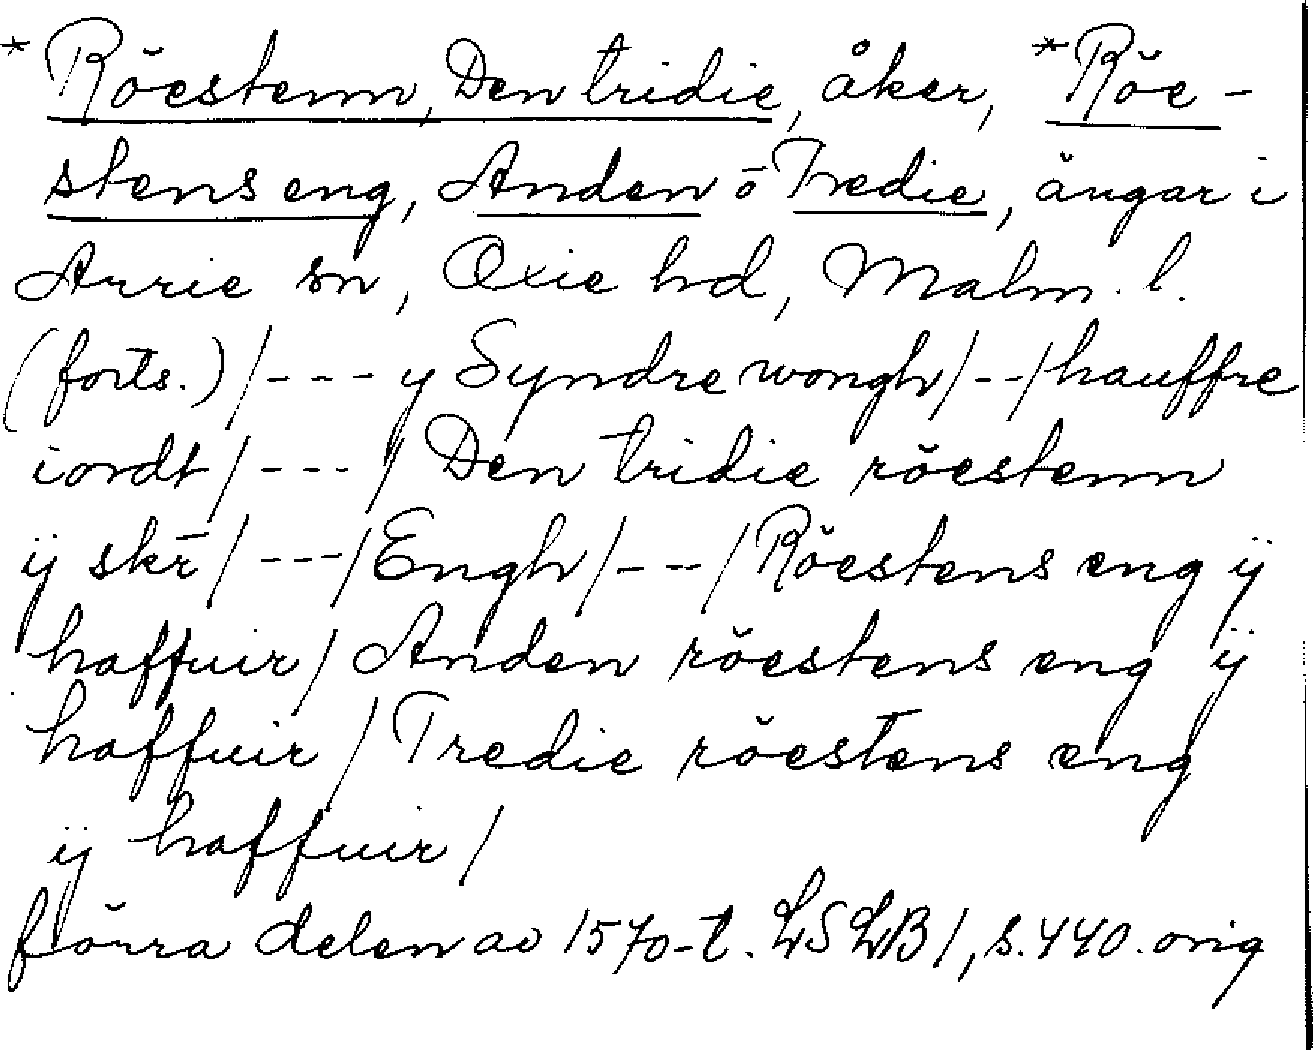 * Röestenn, Den tridie, åker, * Röe-
stens eng, Anden o Tredie, ängar i
Arrie sn, Oxie hd, Malm. l.
(forts.) /--- y Syndre wongh/--/hauffre
iordt/---/ Den tridie röestenn
ÿ skr̄/---/Engh/---/Röestens eng ÿ
haffuir/ Anden röestens eng ÿ
haffuir/ Tredie röestens eng
ÿ haffuir/
förra delen av 1570-t. LSLB 1, s. 440. orig